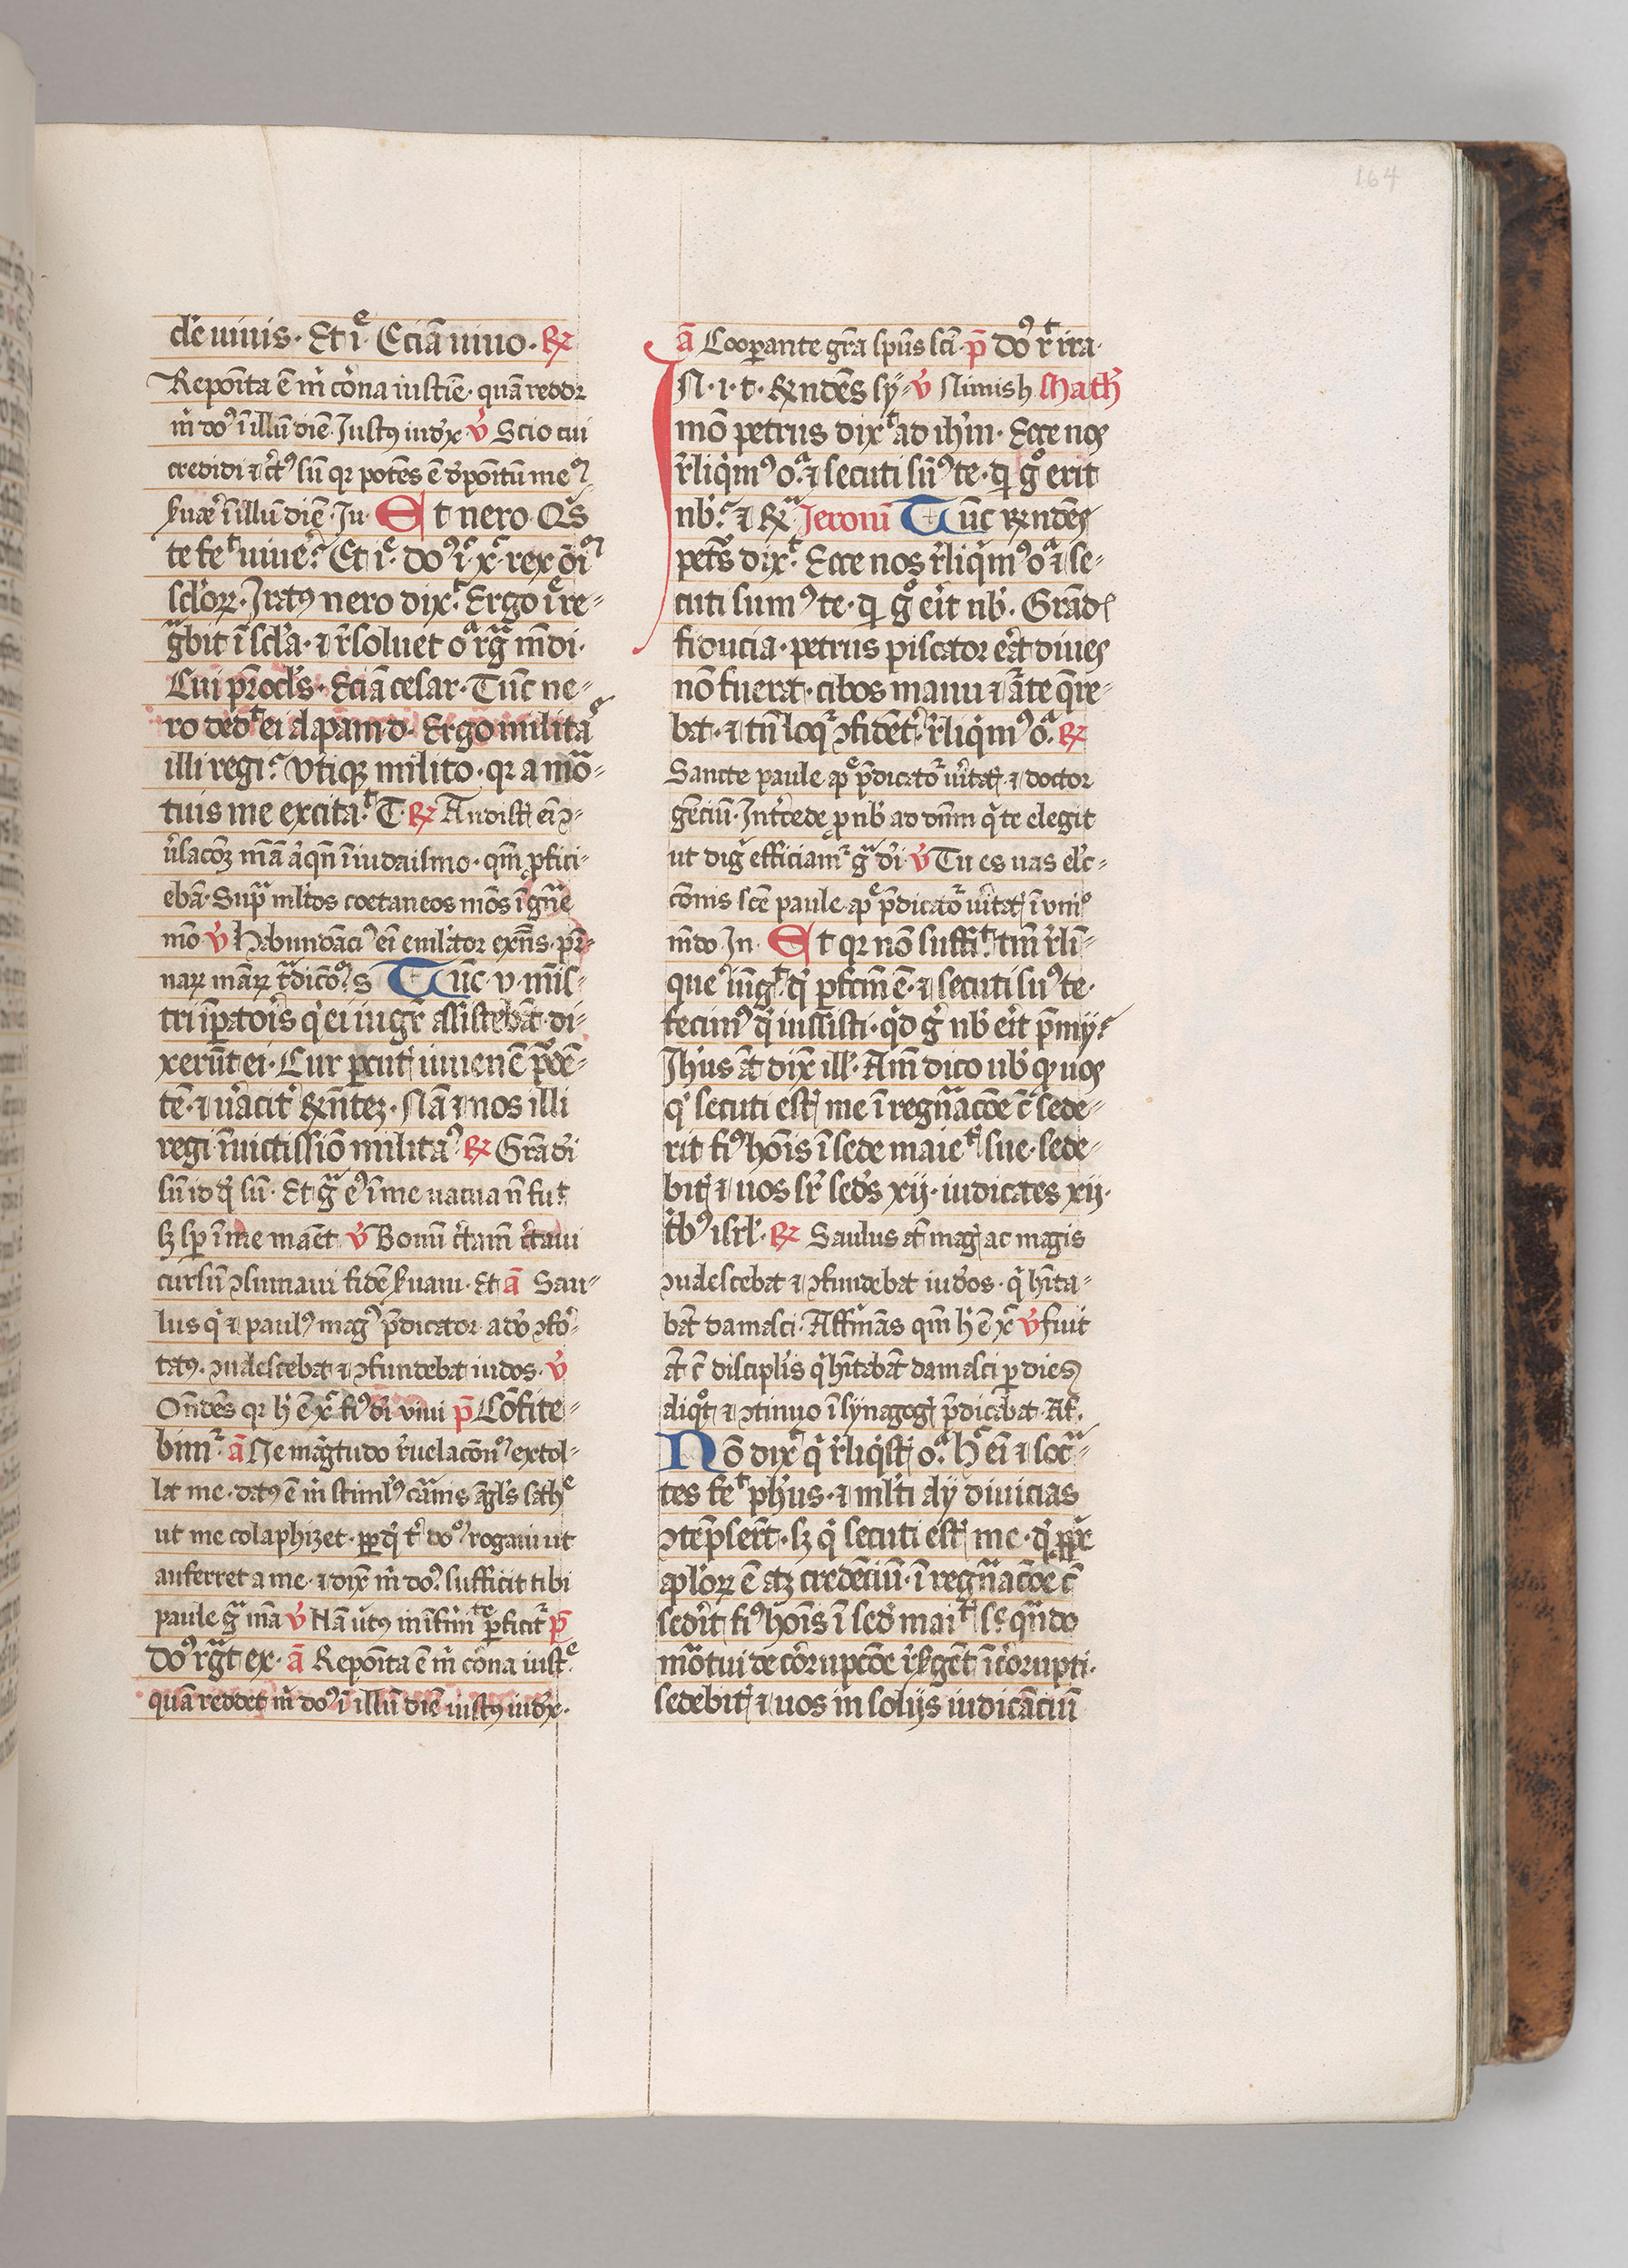 164
de uiuis · Et iᵉ Eciā uiuo · ℟
Reposita ē m̄ corona iusticie · quā reddet
m̄ doꝰ ī illū diē · Iustꝰ iudex ℣ Scio cui
credidi ⁊ c̄tꝰ sū qr potēs ē depositum meū
ẜuare ī illū diē · Iu · Et nero · Qis
te fecᵗ uiuerᵉ? Et iᵉ · doꝰ i · x · rex oīm
sclōꝝ · Iratꝰ nero dixᵗ · Ergo ī re⸗
gͣbit ī scla · ⁊ r̄soluet oͣ rḡͣ mūdi ·
Cui prōcls · Eciā cesar · Tūc ne⸗
ro dedᵗ ei alapam · d · Ergo militaᵉ
illi regi? Utiqꝫ milito · qr a moͬ⸗
tuis me excitaᵗ · T ℟ Audistꝭ eī ꝯ⸗
ūsacōꝫ meā aͣqn̄ ī iudaismo · qm̄ ꝓfici⸗
ebā · Supͣ mltos coetaneos meos ī gn̄e
meo ℣ Habundāciꝰ eī emlator exn̄s · pͬ⸗
naꝝ meāꝝ tͣdicōnū s Tūc · v · mīs⸗
tri īpatoris qi ei iugr̄ assistebāt · di⸗
xerūt ei · Cur ꝑcutꝭ iuuenē pͬdē⸗
tē · ⁊ ūacitᵉ rn̄teꝫ · Nā ⁊ nos illi
regi īuictissiō militaꝰ ℟ Gra dei
sū id qd sū · Et gͣ eꝰ ī me uacua n̄ fuᵗ
sꝫ sꝑ ī me manet ℣ Bonū certam̄ c̄taui
cursū ꝯsumaui fidē ẜuaui · Et ā Sau⸗
lus qi ⁊ paulꝰ magꝰ p̄dicator a do ꝯfoꝛ⸗
tatꝰ · ꝯualescebat ⁊ ꝯfundebat iudos · ℣
Ondēs qr hic ē xᶜ fiꝰ dei viui p̄ Cōfite⸗
bimᷣ · ā Ne mag̃tudo r̄uelacōnū extol⸗
lat me · datꝰ ē m̄ stimlꝰ cͣrnis agls sathᵉ
ut me colaphizet · ꝓpꝑ qd tᵉ doᵐ rogaui ut
auferret a me · ⁊ dix̄ m̄ doꝰ · sufficit tibi
paule gͣ mā ℣ Nā ūtus in īfirᵗᵉ ꝑficitᷣ p̄
doꝰ rg̃t ex · ā Reposita ē m̄ corona iustᵉ ·
quā reddet m̄ doꝰ ī illū diē iustꝰ iudex ·
ā Cooperante gra spūs sci · p̄ doꝰ rᵗ ira ·
N · i · t · Rn̄dēs sy ⸗ ℣ Nimis h Math
In
mō petrus dixᵗ ad ihm̄ · Ecce nos
r̄liqimꝰ oͣ ⁊ secuti sūꝰ te · qd gͦ erit
nb · ⁊ Rͣ Jeroni Tūc rn̄dens
petrs dixᵗ · Ecce nos r̄liqimꝰ oͣ ⁊ se⸗
cuti sumꝰ te · qd gͦ erit nb · Grand
fiducia · petrus piscator erat diues
non fuerat · cibos manu ⁊ arte qͣre⸗
bat · ⁊ tn̄ loqr ꝯfidentᵉ · r̄liqimꝰ oͣ · ℟
Sancte paule apᵉ p̄dicatoᷣ ūitatꝭ · ⁊ doctor
genciū · Intercede pro nb ad dnm̄ qi te elegit
ut digi efficiamᷣ gͣ dei ℣ Tu es uas elec⸗
cōnis sce paule apᵉ p̄dicatoᷣ ūitatꝭ ī vniᵒ
mūdo · In · Et qr nō suffiᵗ tm̄ r̄li⸗
qu̅e iūgᵗ · qd ꝑfcm̄ ē · ⁊ secuti suꝰ te ·
fecimꝰ qd iussisti · qd gͦ nb erit p̄mij?
Jhus āt dix̄ ill · Am̄ dico ub qd uos
qi secuti estꝭ me ī regn̄acōe c̄ sede⸗
rit fiꝰ hois ī sede maieᵗꝭ sue · sede⸗
bitꝭ ⁊ uos sr̄ seds xij · iudicātes xij ·
tbꝰ isrl · ℟ Saulus āt magꝭ ac magis
ꝯualescebat ⁊ ꝯfundebat iudos · qi hīta⸗
bāt damasci · Affirmās qm̄ hic ē xᶜ ℣ fuit
āt c̄ disciplis qi hītabāt damasci ꝑ dies
aliqot ⁊ ꝯtinuo ī synagogꝭ p̄dicabat · Af ·
Nō dixᵗ qi r̄liqistꝭ oͣ · hͦ eī ⁊ socͣ⸗
tes feᵗ phus · ⁊ mlti alij diuicias
ꝯtēpsert · sꝫ qi secuti estꝭ me · qd ꝓpͬ
aploꝝ ē atꝫ credēciū · ī regn̄acōe c̄
sederit fiꝰ hois ī sede maiᵗꝭ sᵉ qn̄do
moͬtui de coruptōe r̄sgent īcorupti ·
sedebitꝭ ⁊ uos in solijs iudicāciū